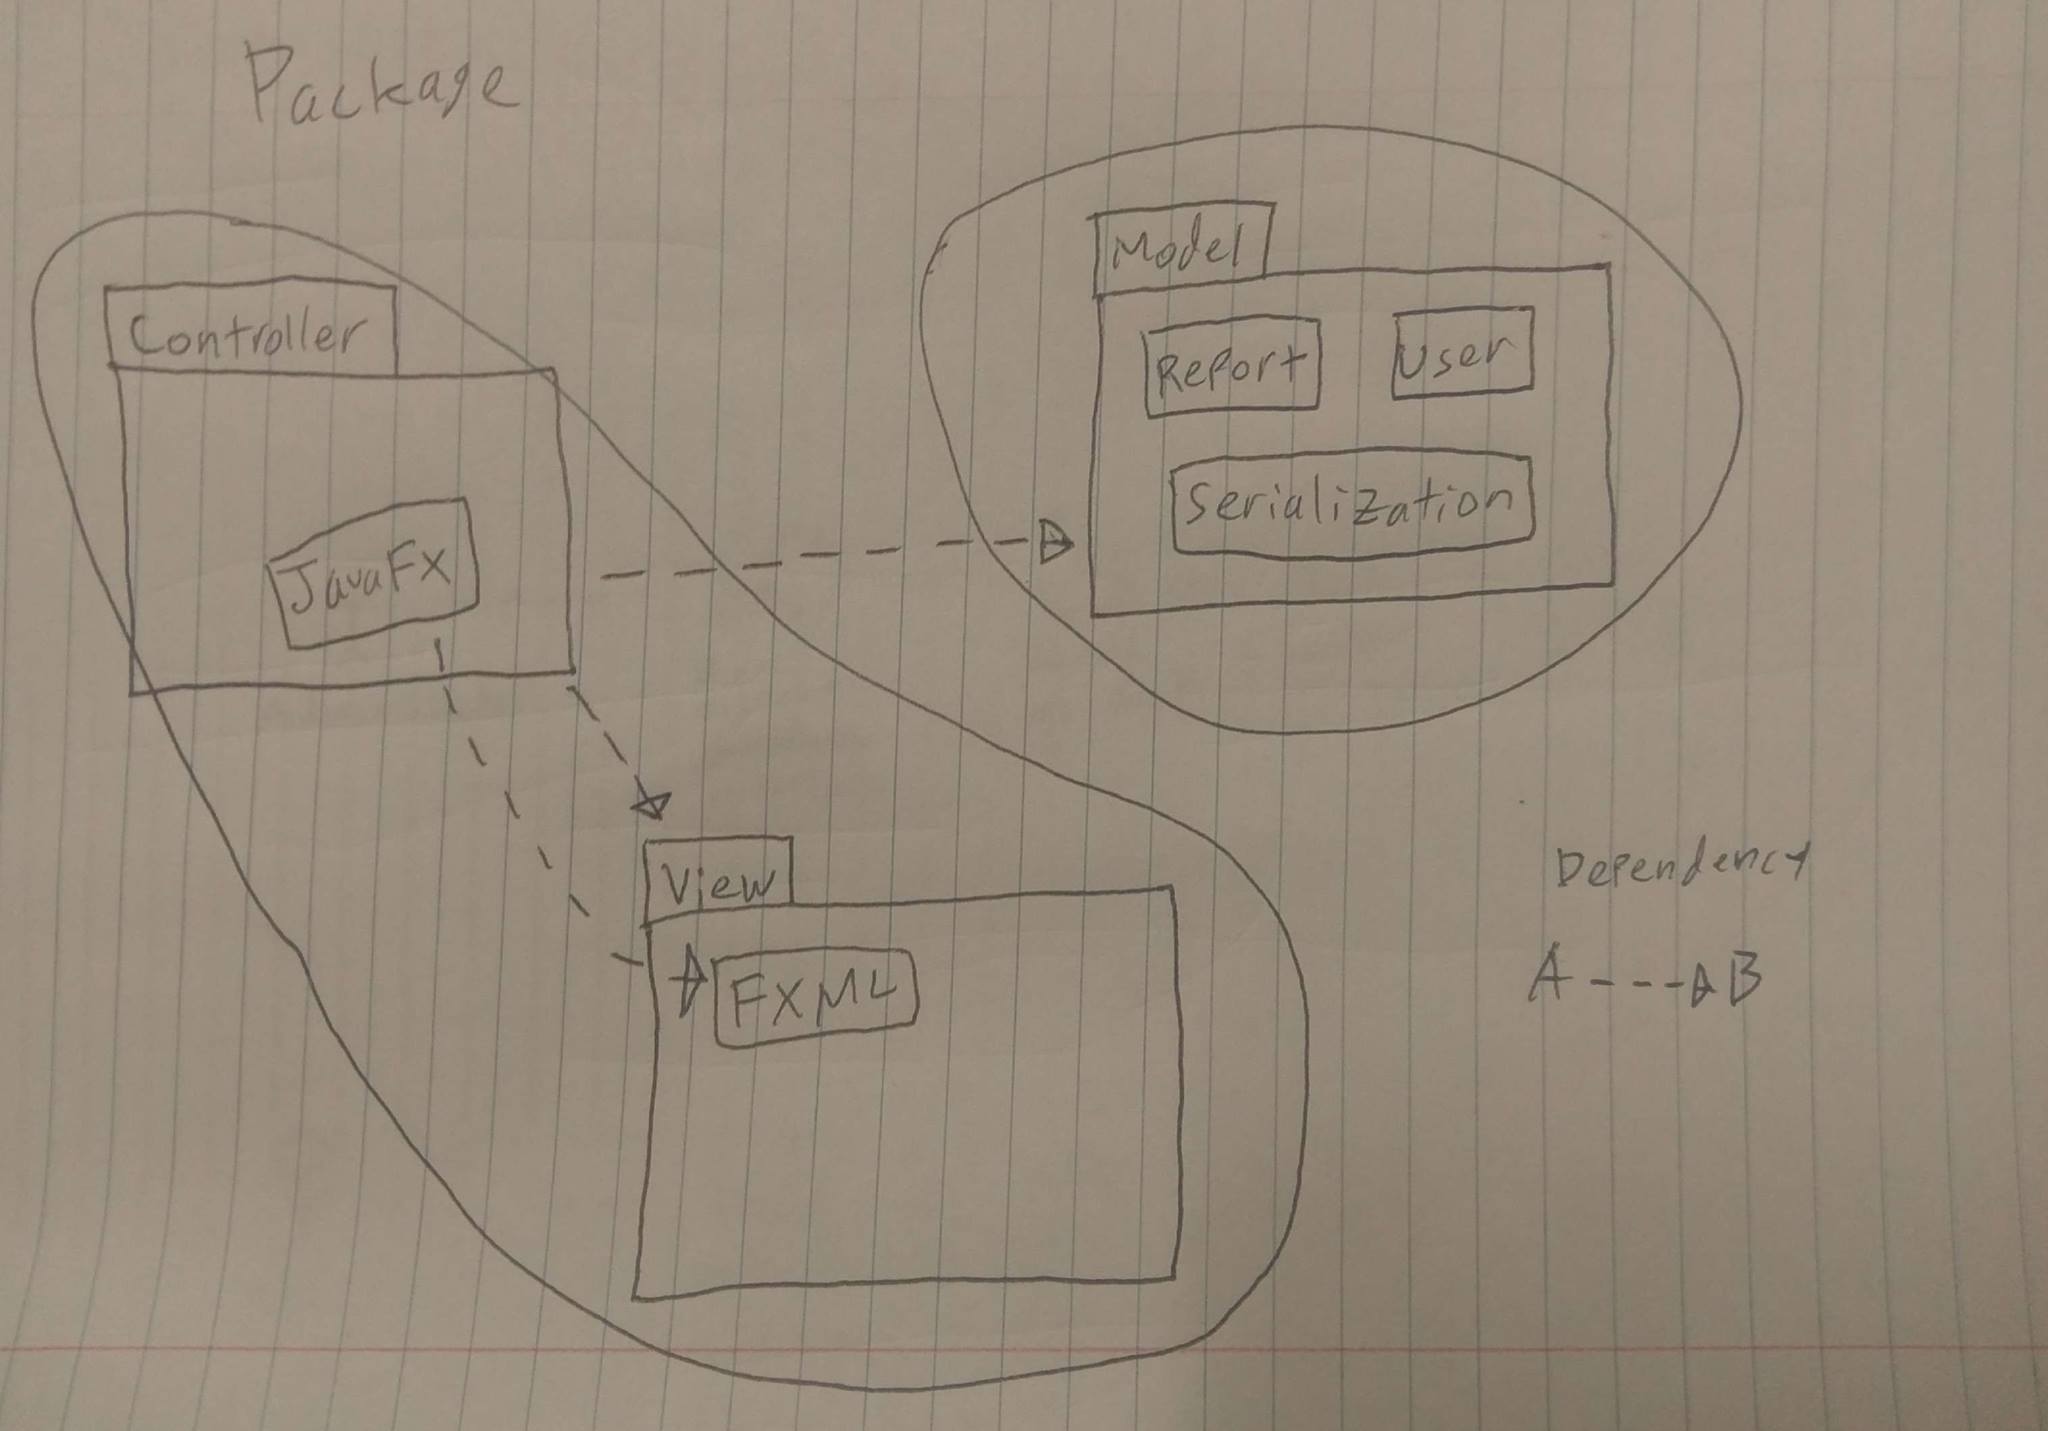 Package
Controller
JavaFX
Model
Report
User
Serialization
View
FXML
Dependency
A B